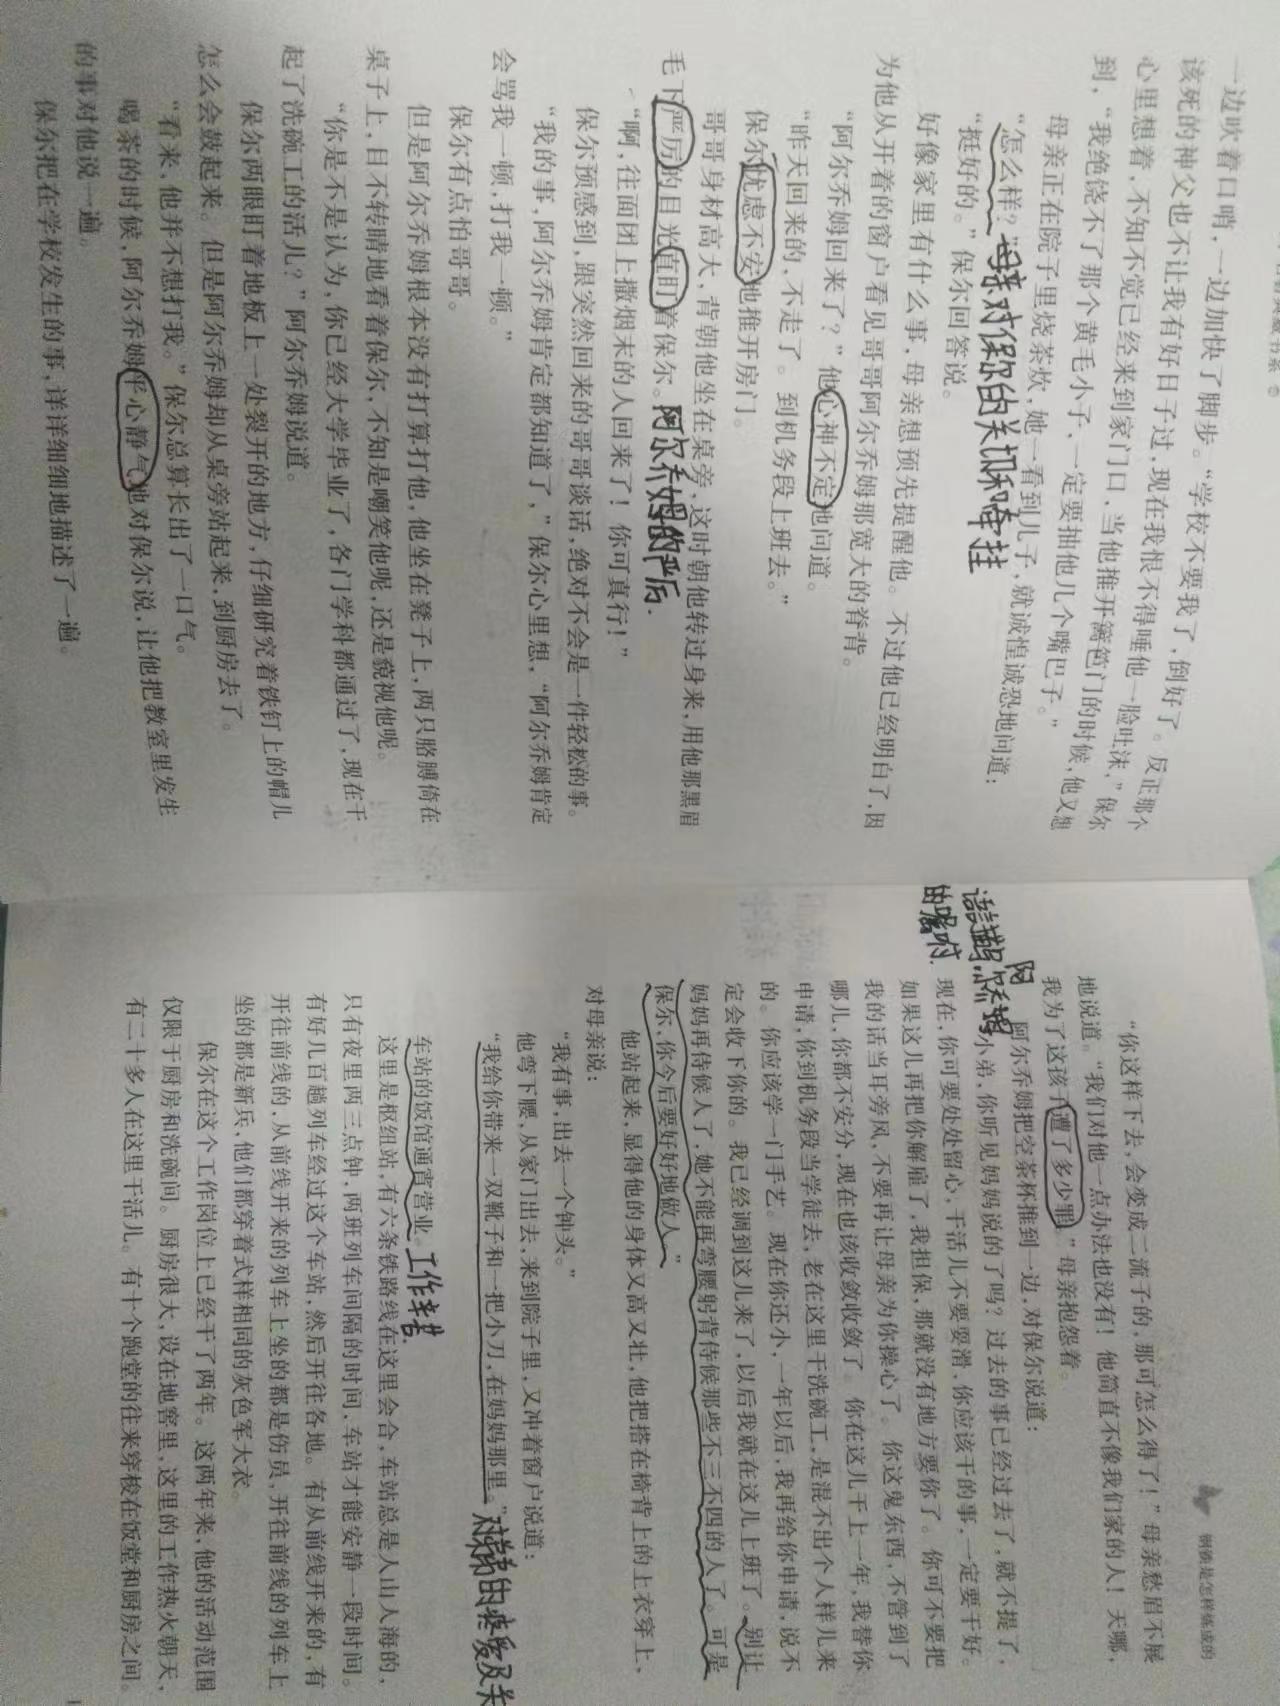 一边吹着口哨，一边加快了脚步。“学校不要我了，倒好了。反正那个
该死的神父也不让我有好日子过，现在我恨不得唾他一脸吐沫，”保尔
心里想着，不知不觉已经来到家门口，当他推开篱笆门的时候，他又想
到，“我绝饶不了那个黄毛小子，一定要抽他几个嘴巴子。”
母亲正在院子里烧茶炊，她一看到儿子，就诚惶诚恐地问道：
“怎么样？”母亲对保尔的关切和牵挂
“挺好的。”保尔回答说。
好像家里有什么事，母亲想预先提醒他。不过他已经明白了，因
为他从开着的窗户看见哥哥阿尔乔姆那宽大的脊背。
“阿尔乔姆回来了？”他心神不定地问道。
“昨天回来的，不走了。到机务段上班去。”
保尔忧虑不安地推开房门。
哥哥身材高大，背朝他坐在桌旁，这时朝他转过身来，用他那黑眉
毛下严厉的目光直盯着保尔。阿尔乔姆的严厉.
“啊，往面团上撒烟末的人回来了！你可真行！”
保尔预感到，跟突然回来的哥哥谈话，绝对不会是一件轻松的事。
“我的事，阿尔乔姆肯定都知道了，”保尔心里想，“阿尔乔姆肯定
会骂我一顿，打我一顿。”
保尔有点怕哥哥。
但是阿尔乔姆根本没有打算打他，他坐在凳子上，两只胳膊倚在
桌子上，目不转睛地看着保尔，不知是嘲笑他呢，还是藐视他呢。
“你是不是认为，你已经大学毕业了，各门学科都通过了，现在干
起了洗碗工的活儿？”阿尔乔姆说道。
保尔两眼盯着地板上一处裂开的地方，仔细研究着铁钉上的帽儿
怎么会鼓起来。但是阿尔乔姆却从桌旁站起来，到厨房去了。
“看来，他并不想打我。”保尔总算长出了一口气。
喝茶的时候，阿尔乔姆平心静气地对保尔说，让他把教室里发生
的事对他说一遍。
保尔把在学校发生的事，详详细细地描述了一遍。
钢铁是怎样炼成的
“你这样下去，会变成二流子的，那可怎么得了！”母亲愁眉不展
地说道。“我们对他一点办法也没有！他简直不像我们家的人！天哪，
我为了这孩子遭了多少罪。”母亲抱怨着。
阿尔乔姆把空茶杯推到一边，对保尔说道：
语言描写，阿尔乔姆
的嘱咐.
小弟，你听见妈妈说的了吗？过去的事已经过去了，就不提了，
现在，你可要处处留心，干活儿不要耍滑，你应该干的事，一定要干好。
如果这儿再把你解雇了，我担保，那就没有地方要你了。你可不要把
我的话当耳旁风，不要再让母亲为你操心了。你这鬼东西，不管到了
哪儿，你都不安分，现在也该收敛收敛了。你在这儿干上一年，我替你
申请，你到机务段当学徒去，老在这里干洗碗工，是混不出个人样儿来
的。你应该学一门手艺。现在你还小，一年以后，我再给你申请，说不
定会收下你的。我已经调到这儿来了，以后我就在这儿上班了。别让
妈妈再侍候人了，她不能再弯腰躬背侍候那些不三不四的人了。可是
保尔，你今后要好好地做人。”
他站起来，显得他的身体又高又壮，他把搭在椅背上的上衣穿上，
对母亲说：
“我有事，出去一个钟头。”
他弯下腰，从家门出去，来到院子里，又冲着窗户说道：
“我给你带来一双靴子和一把小刀，在妈妈那里。”对弟弟的疼爱及关
车站的饭馆通宵营业。工作辛苦
这里是枢纽站，有六条铁路线在这里会合，车站总是人山人海的，
只有夜里两三点钟，两班列车间隔的时间，车站才能安静一段时间。
有好几百趟列车经过这个车站，然后开往各地。有从前线开来的，有
开往前线的，从前线开来的列车上坐的都是伤员，开往前线的列车上
坐的都是新兵，他们都穿着式样相同的灰色军大衣。
保尔在这个工作岗位上已经干了两年。这两年来，他的活动范围
仅限于厨房和洗碗间。厨房很大，设在地窖里，这里的工作热火朝天，
有二十多人在这里干活儿。有十个跑堂的往来穿梭在饭堂和厨房之间。